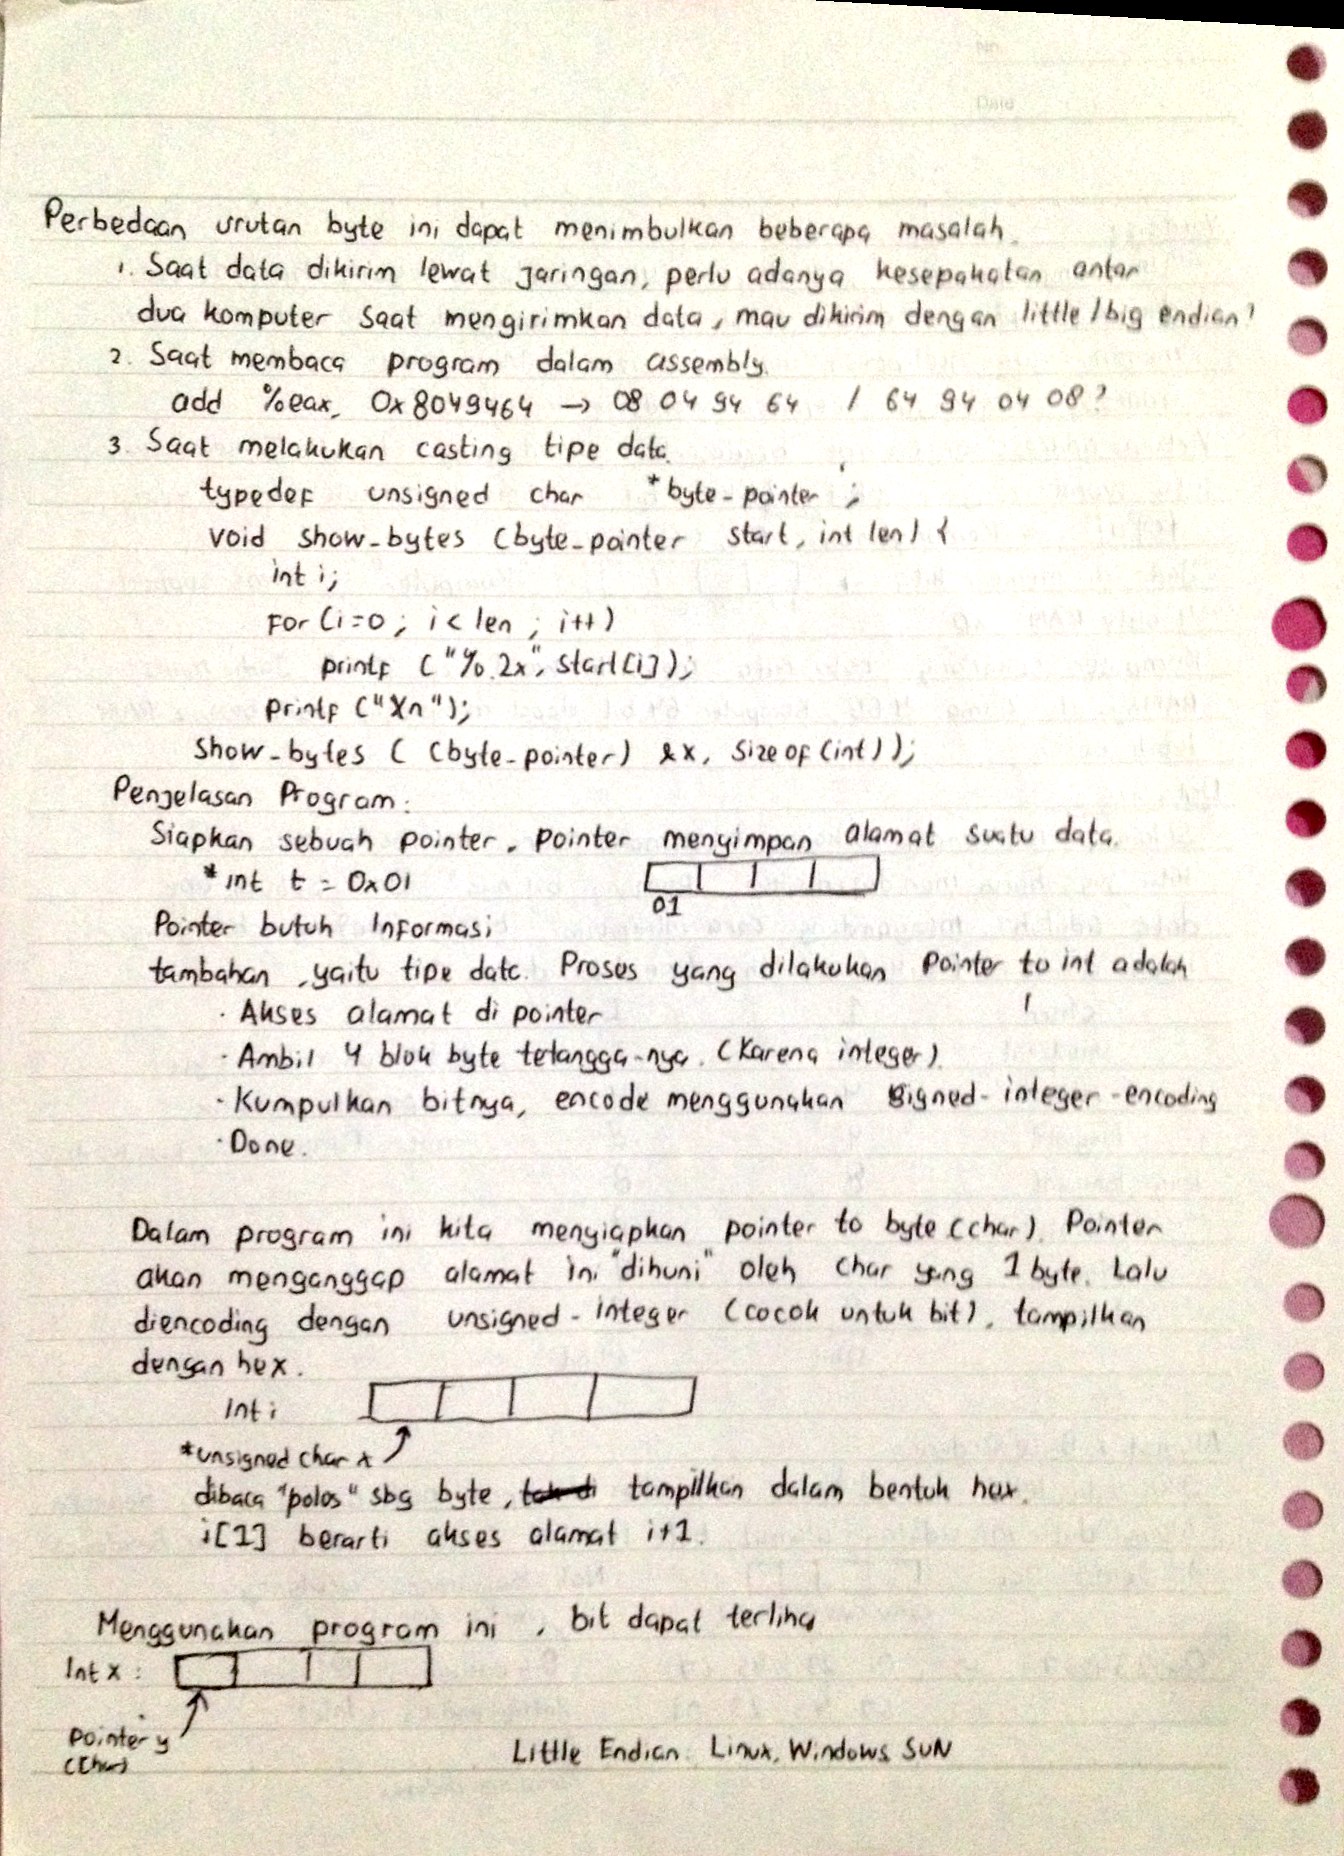 No.
Date
Perbedaan urutan byte ini dapat menimbulkan beberapa masalah.
1. Saat data dikirim lewat jaringan, perlu adanya kesepakatan antar
dua komputer saat mengirimkan data, mau dikirim dengan little/big endian?
2. Saat membaca program dalam assembly.
add %eax, 0x8049464 → 08 04 94 64 / 64 94 04 08?
3. Saat melakukan casting tipe data.
typedef unsigned char *byte-pointer ;
void show-bytes (byte-pointer start, int len) {
int i;
for (i=0 ; i < len ; i++)
printf ("%.2x", start[i]);
printf ("\n");
show-bytes ( (byte-pointer) &x, sizeof (int) );
Penjelasan Program:
Siapkan sebuah pointer. pointer menyimpan alamat suatu data.
*int t = 0x01
01
Pointer butuh Informasi
tambahan, yaitu tipe data. Proses yang dilakukan Pointer to int adalah
· Akses alamat di pointer
· Ambil 4 blok byte tetangga-nya. (Karena integer).
· Kumpulkan bitnya, encode menggunakan signed-integer-encoding
· Done.
Dalam program ini kita menyiapkan pointer to byte (char). Pointer
akan menganggap alamat ini "dihuni" oleh char yang 1 byte. Lalu
diencoding dengan unsigned-integer (cocok untuk bit), tampilkan
dengan hex.
Int i
*unsigned char x
dibaca "polos" sbg byte, tampilkan dalam bentuk hex.
i[1] berarti akses alamat i+1.
Menggunakan program ini, bit dapat terliha
Int x :
Pointer y
(Char)
Little Endian: Linux, Windows SUN